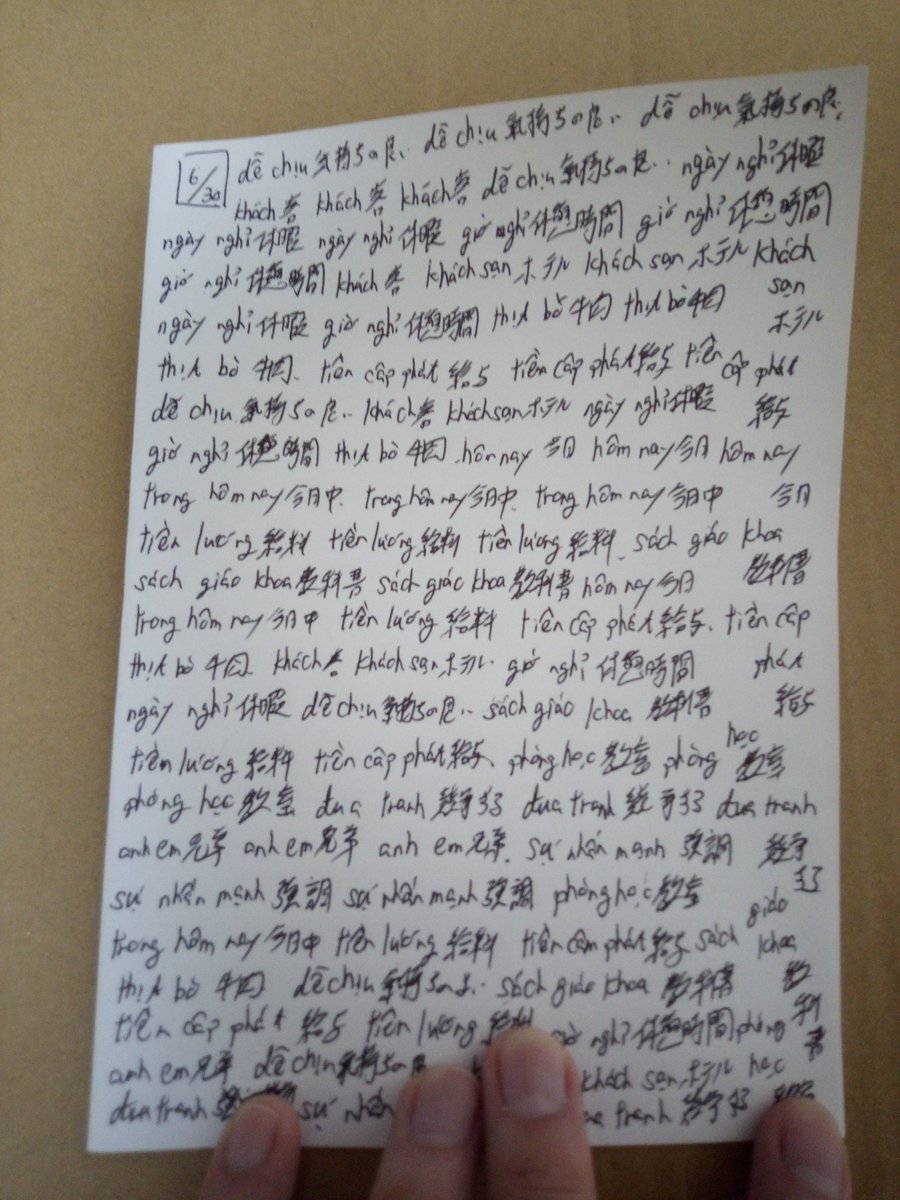 6/30 dễ chịu 氣持ちの良い dễ chịu 氣持ちの良い dễ chịu 氣持ちの良い
khách 客 khách 客 khách 客 dễ chịu 氣持ちの良い ngày nghỉ 休暇
ngày nghỉ 休暇 ngày nghỉ 休暇 giờ nghỉ 休憩時間 giờ nghỉ 休憩時間
giờ nghỉ 休憩時間 khách 客 khách sạn ホテル khách sạn ホテル khách
sạn
ホテル
ngày nghỉ 休暇 giờ nghỉ 休憩時間 thịt bò 牛肉 thịt bò 牛肉
thịt bò 牛肉 tiền cấp phát 給与 tiền cấp phát 給与 tiền cấp phát
給与
dễ chịu 氣持ちの良い khách 客 khách sạn ホテル ngày nghỉ 休暇
giờ nghỉ 休憩時間 thịt bò 牛肉 hôm nay 今日 hôm nay 今日 hôm nay
今日
trong hôm nay 今日中 trong hôm nay 今日中 trong hôm nay 今日中
tiền lương 給料 tiền lương 給料 tiền lương 給料 sách giáo khoa
教科書
sách giáo khoa 教科書 sách giáo khoa 教科書 hôm nay 今日
trong hôm nay 今日中 tiền lương 給料 tiền cấp phát 給与 tiền cấp
phát
給与
thịt bò 牛肉 khách 客 khách sạn ホテル giờ nghỉ 休憩時間
ngày nghỉ 休暇 dễ chịu 氣持ちの良い sách giáo khoa 教科書
tiền lương 給料 tiền cấp phát 給与 phòng học 教室 phòng học
教室
phòng học 教室 đua tranh 競争する đua tranh 競争する đua tranh
競争
する
anh em 兄弟 anh em 兄弟 anh em 兄弟 sự nhấn mạnh 強調
sự nhấn mạnh 強調 sự nhấn mạnh 強調 phòng học 教室
trong hôm nay 今日中 tiền lương 給料 tiền câm phát 給与 sách giáo
khoa
教
科
書
thịt bò 牛肉 dễ chịu 氣持ちの良い sách giáo khoa 教科書
tiền cấp phát 給与 tiền lương 給料 giờ nghỉ 休憩時間 phòng
học
教室
anh em 兄弟 dễ chịu 氣持ちの良 khách sạn ホテル
đua tranh sự nhấn tranh 競争する